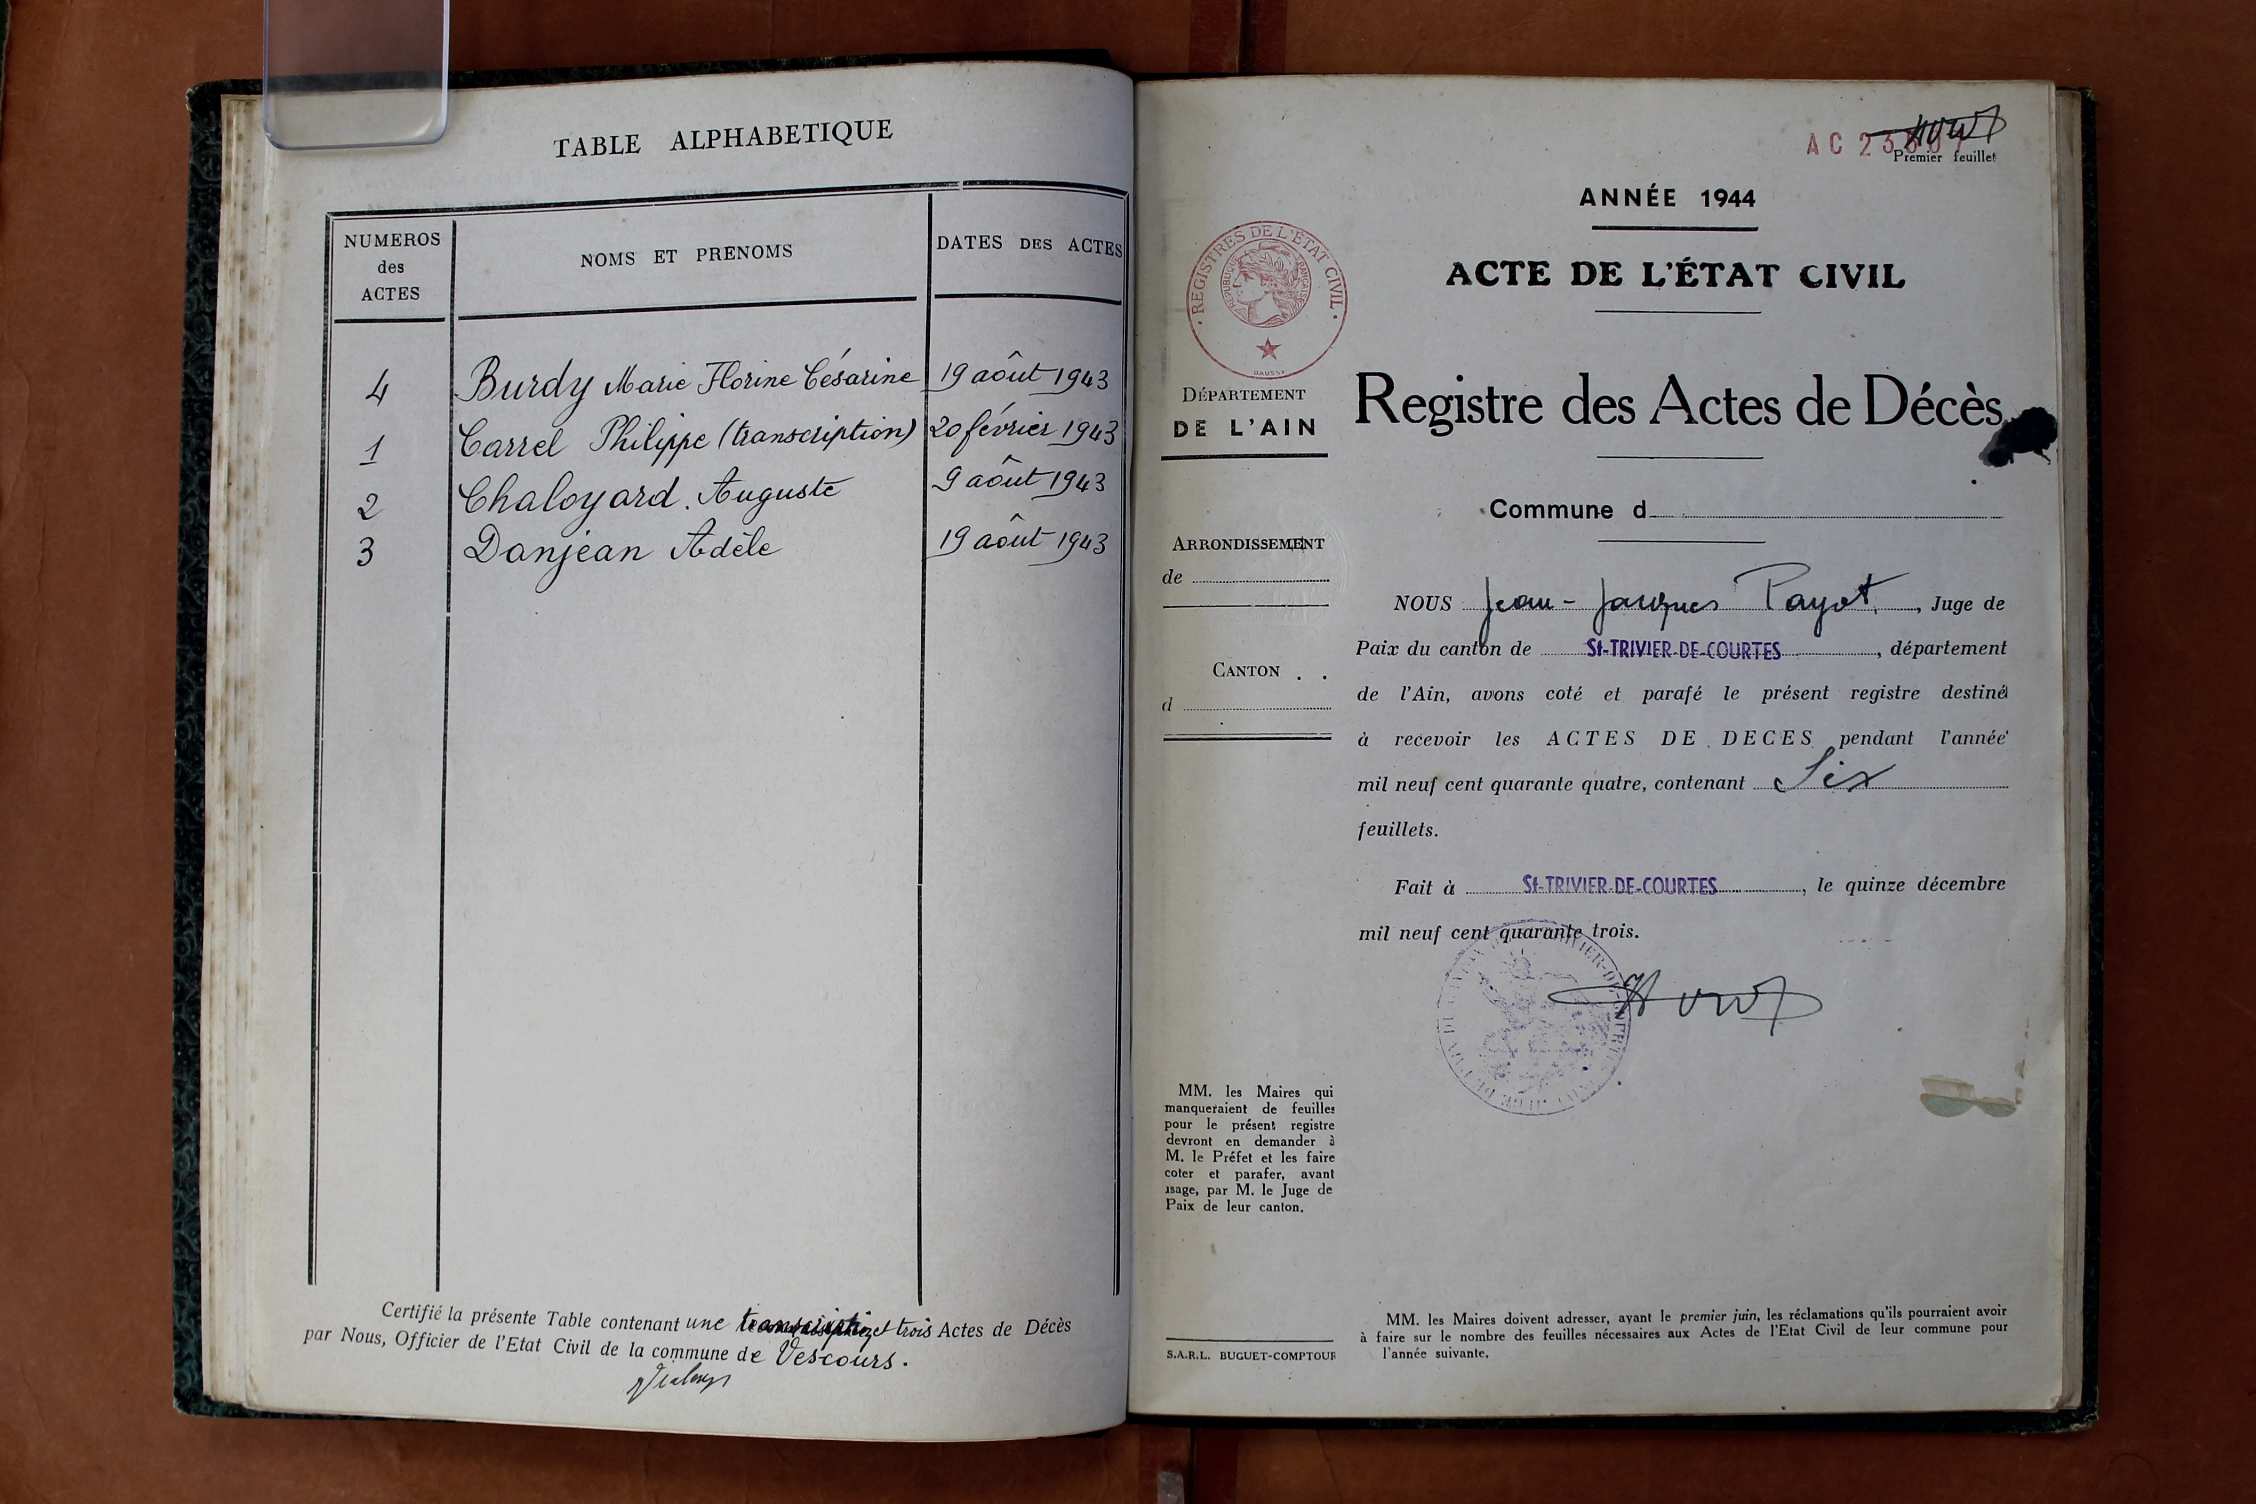 TABLE ALPHABETIQUE
NUMEROS des ACTES
NOMS ET PRENOMS
DATES DES ACTES
4 Burdy Marie Florine Césarine 19 août 1943
1 Carrel Philippe (transcription) 20 février 1943
2 Chaloyard. Auguste 9 août 1943
3 Danjean Adèle 19 août 1943
Certifié la présente Table contenant une transcription et trois Actes de Décès
par Nous, Officier de l'Etat Civil de la commune de Vescours.
AC
Premier feuillet
ANNÉE 1944
ACTE DE L'ÉTAT CIVIL
REGISTRES DE L'ÉTAT CIVIL
RÉPUBLIQUE FRANÇAISE
DÉPARTEMENT
DE L'AIN
Registre des Actes de Décès
Commune d
ARRONDISSEMENT
de
CANTON
d
NOUS Jean-Jacques Payot, Juge de
Paix du canton de St-TRIVIER-DE-COURTES, département
de l'Ain, avons coté et parafé le présent registre destiné
à recevoir les ACTES DE DECES pendant l'année
mil neuf cent quarante quatre, contenant Six
feuillets.
Fait à St-TRIVIER-DE-COURTES, le quinze décembre
mil neuf cent quarante trois.
MM. les Maires qui
manqueraient de feuilles
pour le présent registre
devront en demander à
M. le Préfet et les faire
coter et parafer, avant
usage, par M. le Juge de
Paix de leur canton.
S.A.R.L. BUGUET-COMPTOUR
MM. les Maires doivent adresser, avant le premier juin, les réclamations qu'ils pourraient avoir
à faire sur le nombre des feuilles nécessaires aux Actes de l'Etat Civil de leur commune pour
l'année suivante.